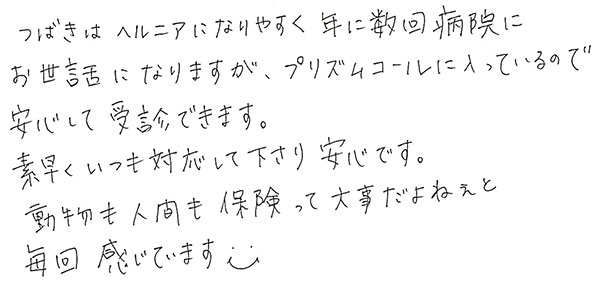 つばきは ヘルニアになりやすく 年に数回 病院に
お世話になりますが、プリズムコールに入っているので
安心して 受診できます。
素早くいつも対応して下さり 安心です。
動物も人間も 保険って 大事だよねぇと
毎回 感じています